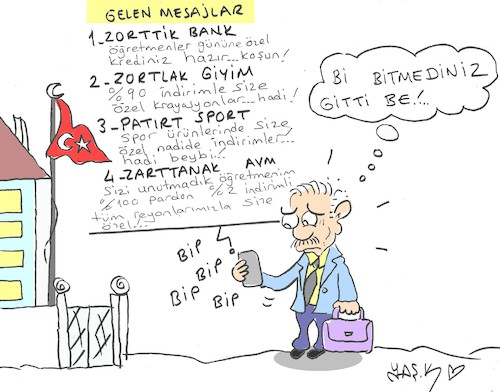 GELEN MESAJLAR
1_ZORTTİK BANK
öğretmenler gününe özel
krediniz hazır... koşun!
2_ZORTLAK GİYİM
%90 indirimle size
özel krayasyonlar...hadi!
3_PATIRT SPORT
Spor ürünlerinde size
özel nadide indirimler...!
hadi beybi..!
4_ZARTTANAK AVM
Sizi unutmadık öğretmenim
%100 pardon %2 indirimli
tüm reyonlarımızla size
özel...!
Bİ BİTMEDİNİZ
GİTTİ BE!...
BİP
BİP
BİP
BİP
YAŞ.K